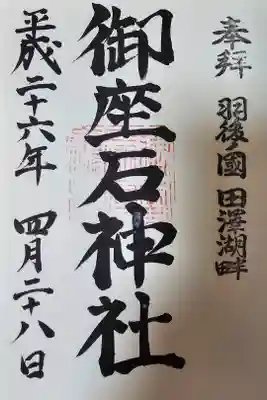 奉拝
羽後國 田澤湖畔
御座石神社
平成二十六年 四月二十八日